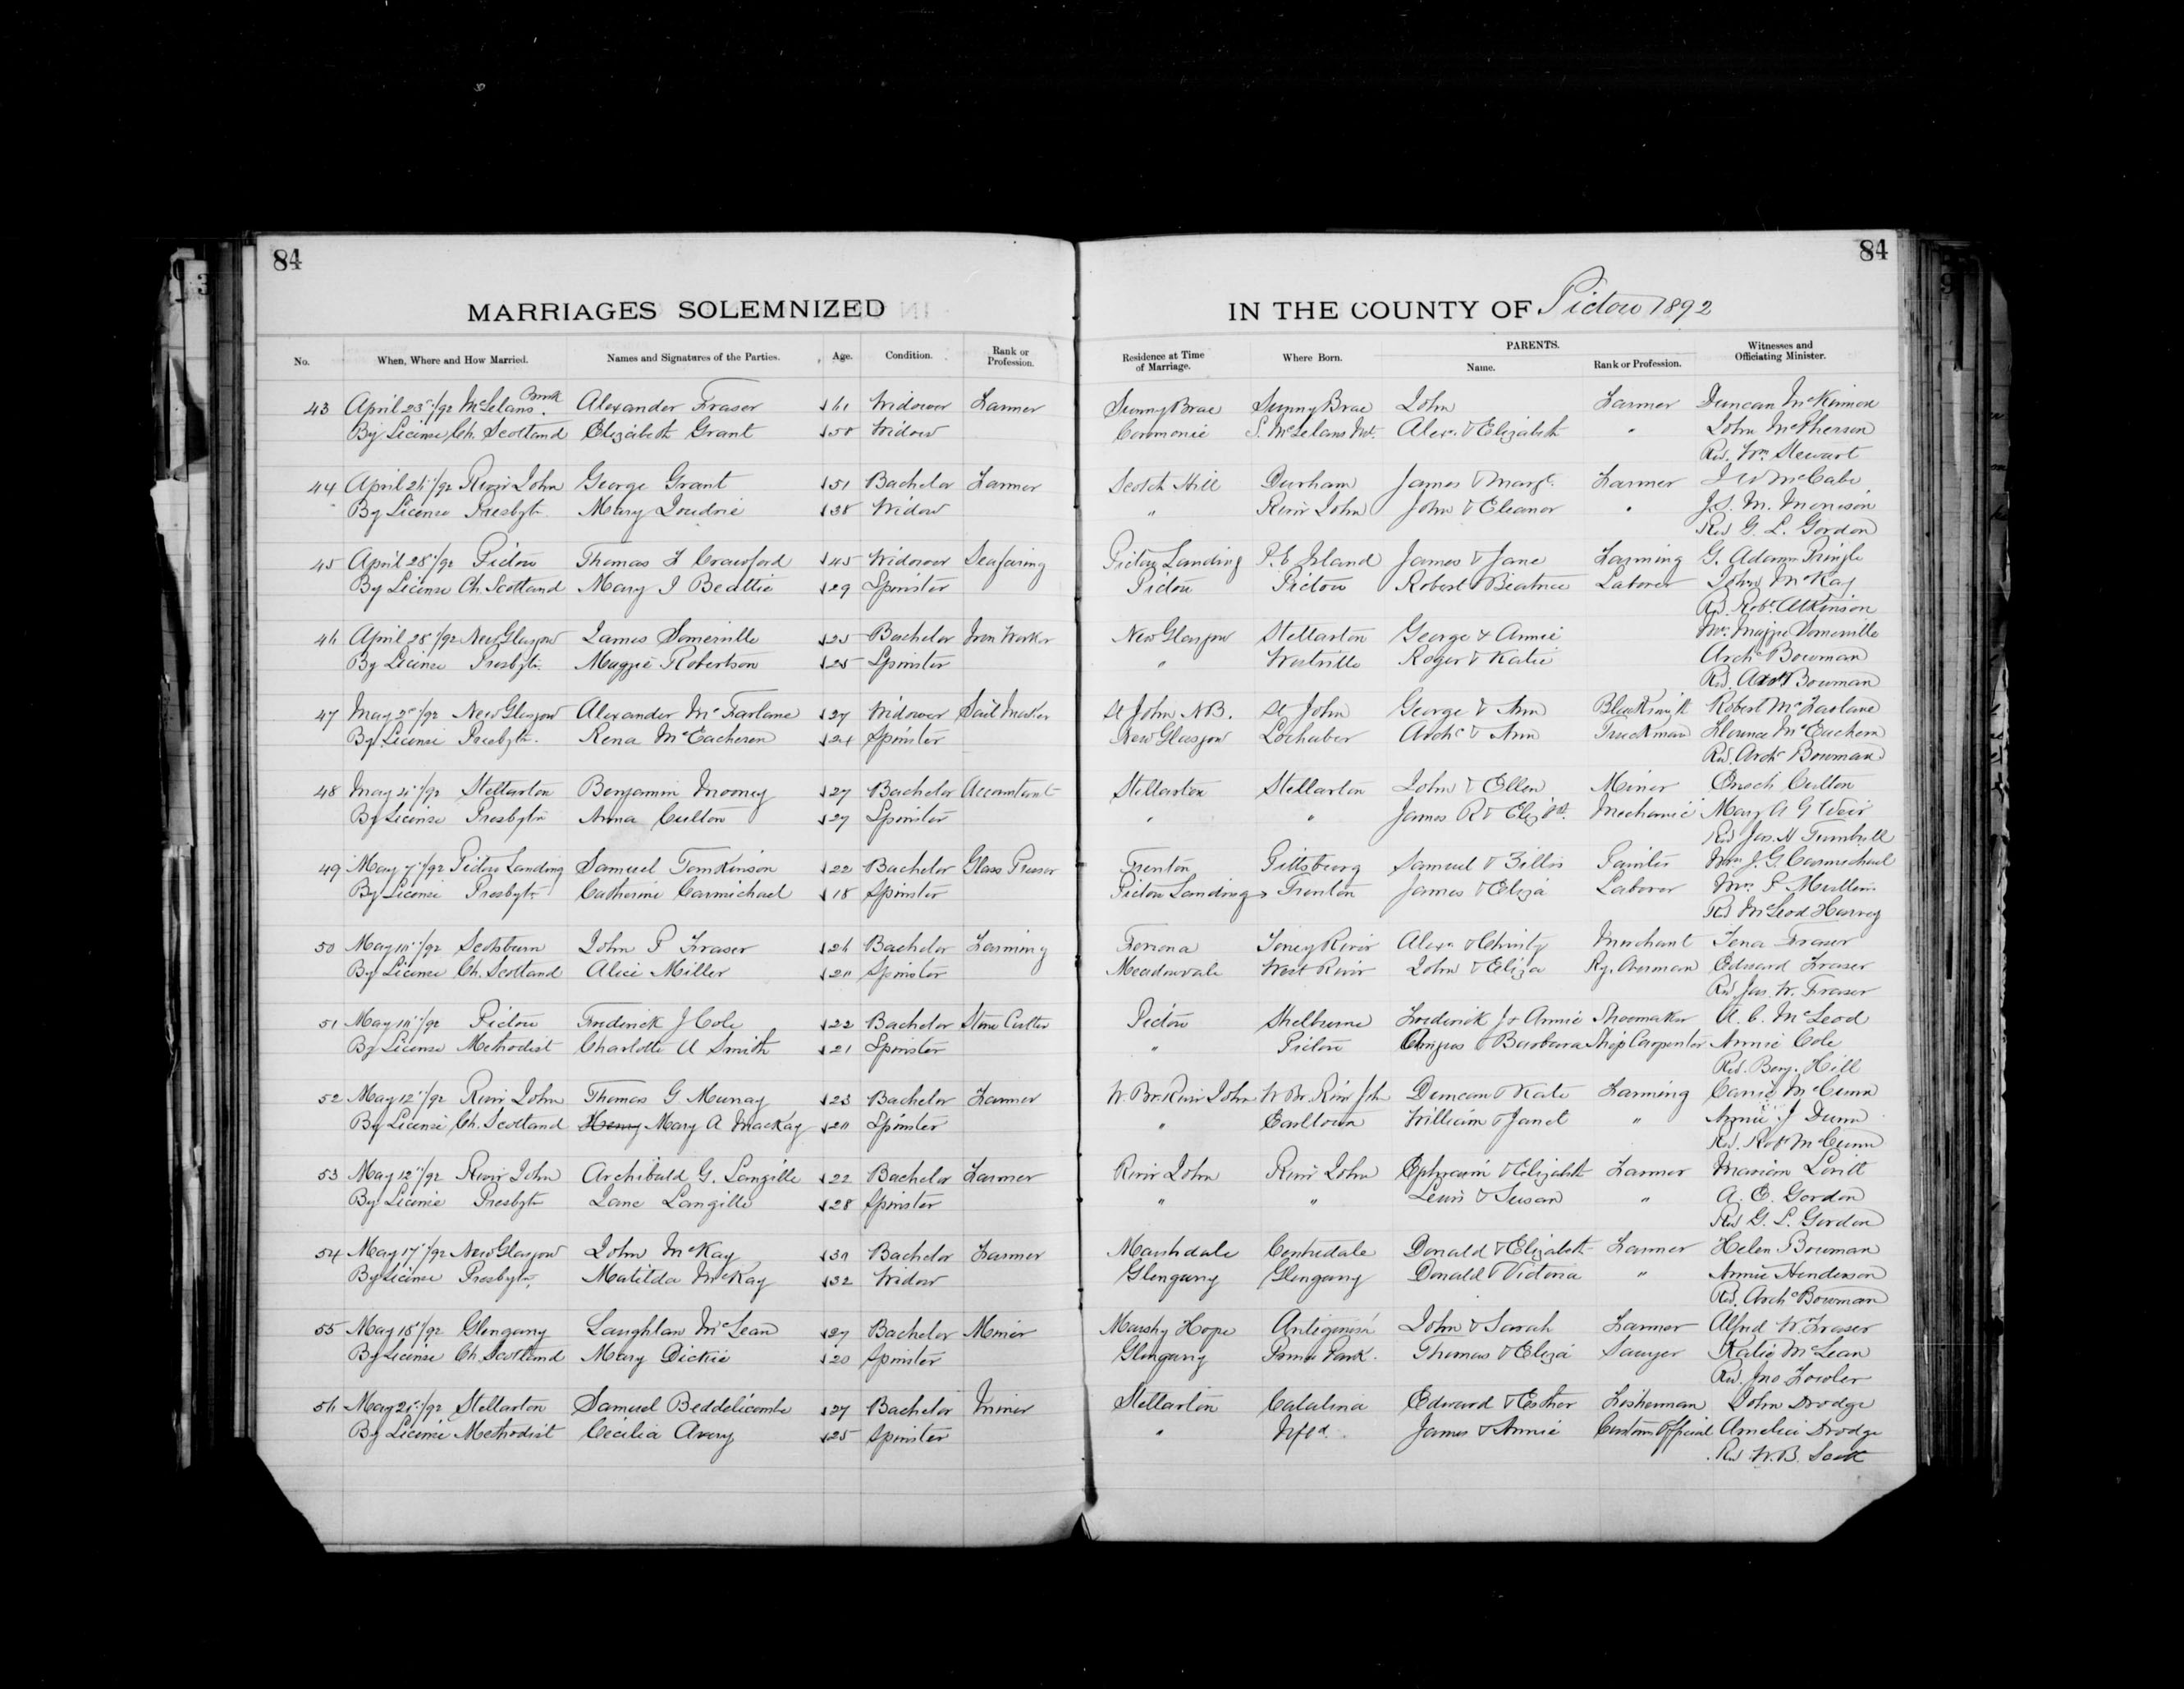 84
84
MARRIAGES SOLEMNIZED IN THE COUNTY OF Pictou 1892
No. When, Where and How Married. Names and Signatures of the Parties. Age. Condition. Rank or Profession. Residence at Time of Marriage. Where Born. PARENTS. Name. Rank or Profession. Witnesses and Officiating Minister.
43 April 23rd/92 McLelans Brook Alexander Fraser 61 Widower Farmer Sunny Brae Sunny Brae John Farmer Duncan McKinnon
By License Ch. Scotland Elizabeth Grant 50 Widow S. McLelans Mt. Alexr. & Elizabeth " John McPherson
Rev. Wm Stewart
44 April 26/92 River John George Grant 51 Bachelor Farmer Scotch Hill Durham James & Margt. Farmer J W McCabe
By License Presbytn. Mary Joudrie 38 Widow " River John John & Eleanor " J. S. M. Morrison
Rev G. L. Gordon
45 April 28/92 Pictou Thomas F Crawford 45 Widower Seafaring Pictou Landing P. E Island James & Jane Farming G. Adamn Pringle
By License Ch. Scotland Mary J Beattie 29 Spinster Pictou Pictou Robert Beatrice Laborer John McKay
Rev. Robt. Atkinson
46 April 28/92 New Glasgow James Somerville 25 Bachelor Iron Worker New Glasgow Stellarton George & Annie Mrs. Maggie Somerville
By License Presbytn. Maggie Robertson 25 Spinster " Westville Roger & Katie Archd Bowman
Rev. Archd Bowman
47 May 2nd/92 New Glasgow Alexander McFarlane 27 Widower Sail Maker St John N.B. St John George & Ann Blacksmith Robert McFarlane
By License Presbytn. Rena McEacheren 24 Spinster New Glasgow Lochaber Archd & Ann Truckman Florence McEachern
Rev. Archd Bowman
48 May 4/92 Stellarton Benjamin Mooney 27 Bachelor Accountant Stellarton Stellarton John & Ellen Miner Enoch Culton
By License Presbytn Anna Culton 27 Spinster " " James R & Elizbt. Mechanic Mary A G Weir
Rev Jas. H Turnbull
49 May 7/92 Pictou Landing Samuel Tomkinson 22 Bachelor Glass Presser Trenton Pittsburg Samuel & Zillis Painter Wm J. G Carmichael
By License Presbytn Catherine Carmichael 18 Spinster Pictou Landing Trenton James & Eliza Laborer Mrs. P Mullin
Rev McLeod Harvey
50 May 10/92 Scotsburn John P Fraser 26 Bachelor Farming Fomona Toney River Alexr & Christy Merchant Tena Fraser
By License Ch. Scotland Alice Miller 20 Spinster Meadowvale West River John & Eliza Ry. Overman Edward Fraser
Rev Jas. W. Fraser
51 May 10/92 Pictou Frederick J Cole 22 Bachelor Stone Cutter Pictou Shelburne Frederick J & Annie Shoemaker A. C. McLeod
By License Methodist Charlotte A Smith 21 Spinster " Pictou Angus & Barbara Ship Carpenter Annie Cole
Rev. Benj. Hill
52 May 12/92 River John Thomas G Murray 23 Bachelor Farmer W. Br. River John W. Br. River Jhn Duncan & Kate Farming Carrie McCunn
By License Ch. Scotland Henry Mary A MacKay 20 Spinster " Earltown William & Janet " Annie J Dunn
Rev. Robt McCunn
53 May 12/92 River John Archibald G. Langille 22 Bachelor Farmer River John River John Ephraim & Elizabeth Farmer Mariam Levitt
By License Presbytn Jane Langille 28 Spinster " " Lewis & Susan " A. E. Gordon
Rev G. L. Gordon
54 May 17/92 New Glasgow John McKay Bachelor Farmer Marshdale Centredale Donald & Elizabeth Farmer Helen Bowman
By License Presbytn. Matilda McKay 32 Widow Glengarry Glengarry Donald & Victoria " Annie Henderson
Rev. Archd Bowman
55 May 18/92 Glengarry Laughlan McLean 27 Bachelor Miner Marshy Hope Antigonish John & Sarah Farmer Alfred W Fraser
By License Ch. Scotland Mary Dickie 20 Spinster Glengarry Thomas & Eliza Sawyer Katie McLean
Rev. Jno Fowler
56 May 21st/92 Stellarton Samuel Beddelicombe 27 Bachelor Miner Stellarton Catalina Edward & Esther Fisherman John Drodge
By License Methodist Cecilia Avery 25 Spinster " Nfld. James & Annie Customs Official Amelia Drodge
Rev W. B.